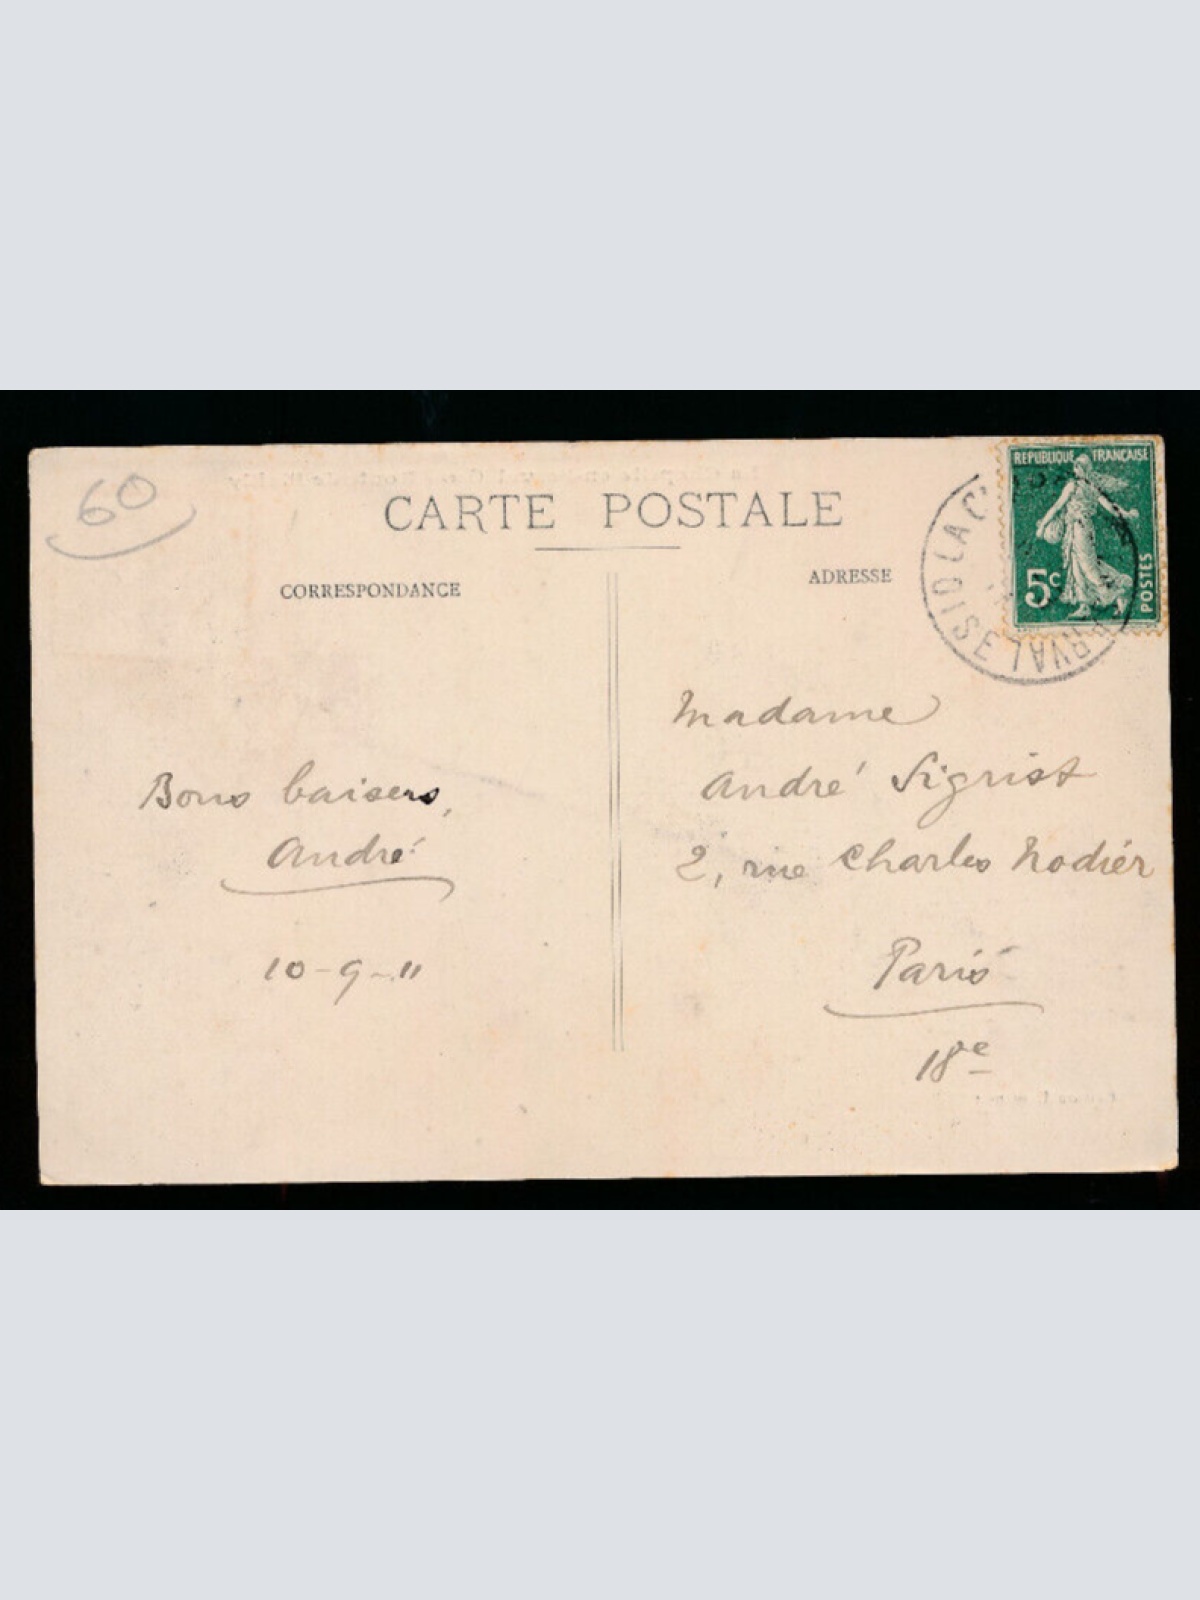 60
CARTE POSTALE
CORRESPONDANCE
ADRESSE
RÉPUBLIQUE FRANÇAISE
5c
POSTES
Bons baisers,
André
10-9-11
Madame
André Sigrist
2, rue Charles Nodier
Paris
18e